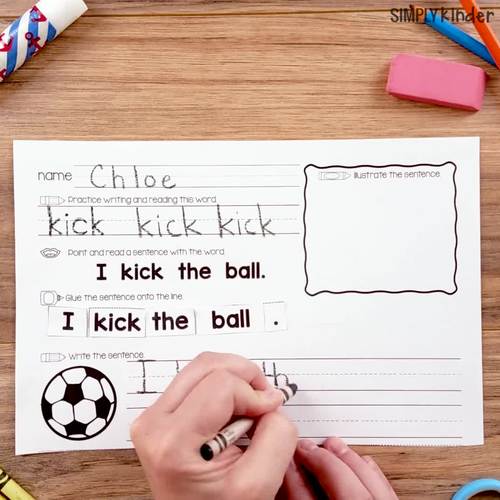 SIMPLYkinder
name Chloe
Practice writing and reading this word.
kick kick kick
Point and read a sentence with the word.
I kick the ball.
Glue the sentence onto the line.
I kick the ball .
Write the sentence.
I
Illustrate the sentence.